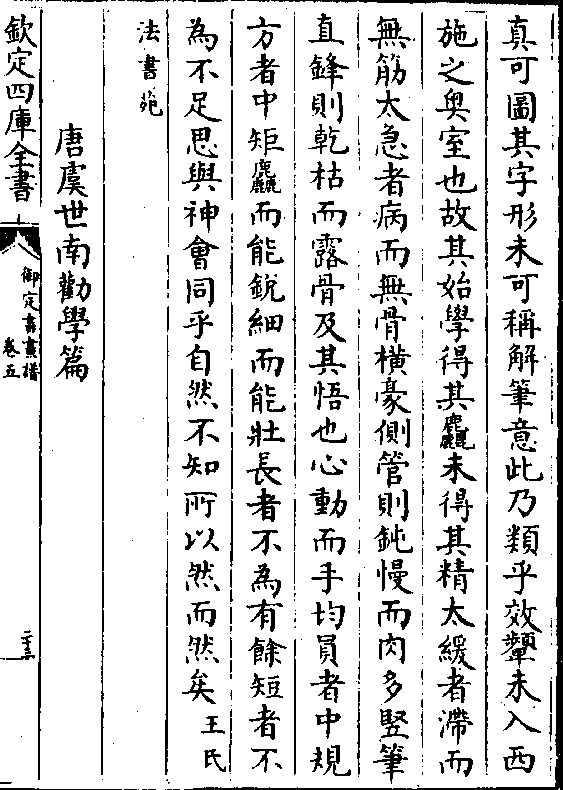 真可圖其字形未可稱解筆意此乃類乎效顰未入西
施之奥室也故其始學得其麤未得其精太緩者滯而
無筋太急者病而無骨横毫側管則鈍慢而肉多竪筆
直鋒則乾枯而露骨及其悟也心動而手均員者中規
方者中矩麤而能鋭細而能壯長者不為有餘短者不
為不足思與神會同乎自然不知所以然而然矣王氏
法書苑
唐虞世南勸學篇
欽定四庫全書
御定書畫譜
卷五
二十三